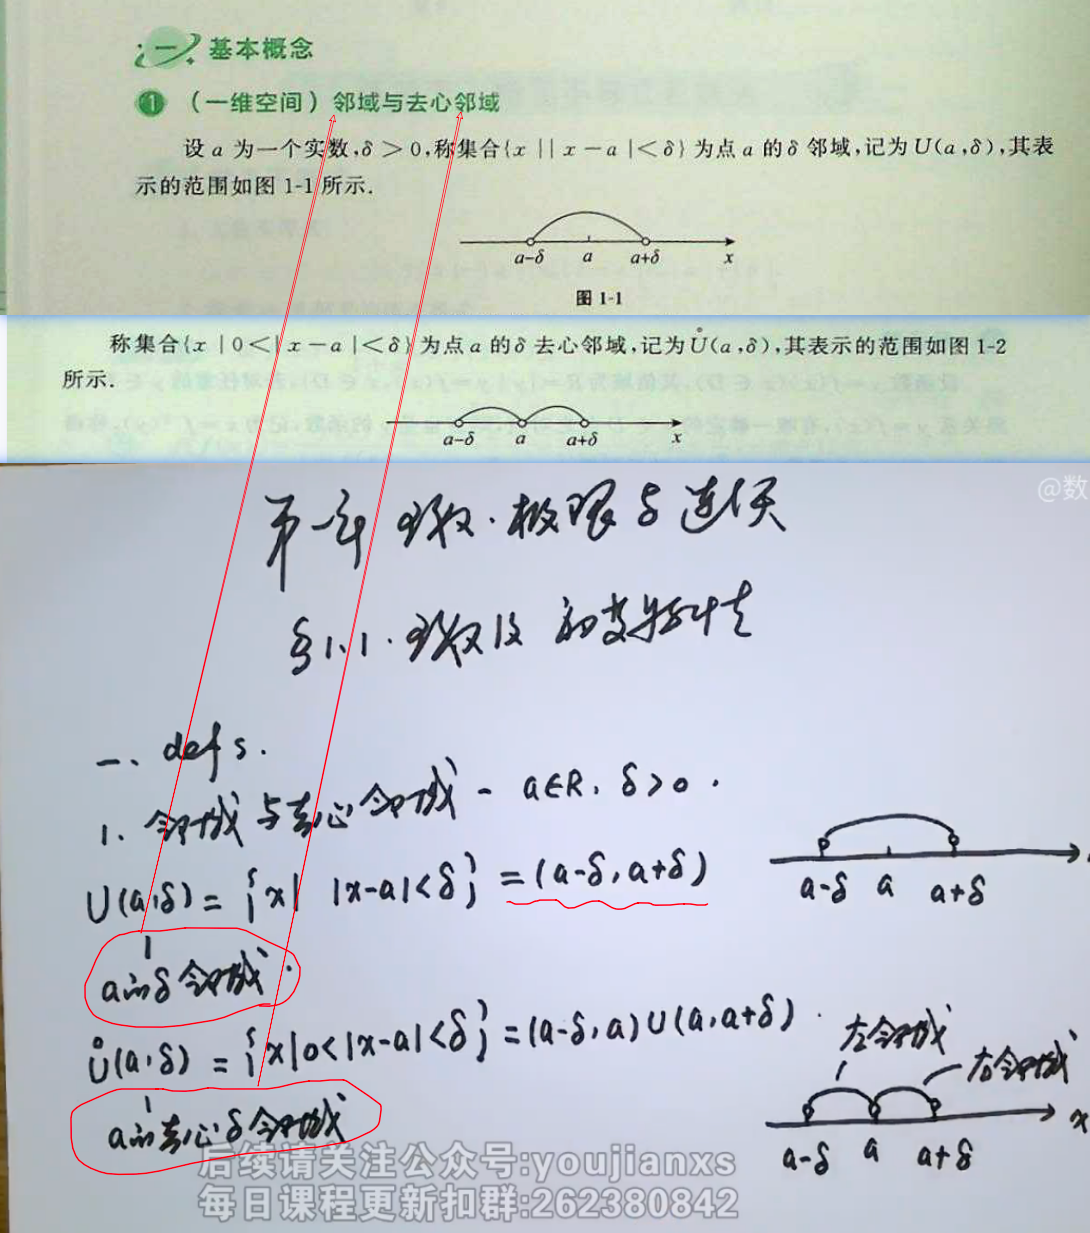 一 基本概念
1 (一维空间)邻域与去心邻域
设 a 为一个实数,δ>0,称集合{x||x-a|<δ}为点 a 的 δ 邻域,记为 U(a,δ),其表
示的范围如图 1-1 所示.
a-δ a a+δ x
图 1-1
称集合{x|0<|x-a|<δ}为点 a 的 δ 去心邻域,记为Ů(a,δ),其表示的范围如图 1-2
所示.
a-δ a a+δ x
@数
第一章 函数·极限与连续
§1.1. 函数及初等特性
一、defs.
1. 邻域与去心邻域 - a∈R, δ>0.
U(a,δ) = {x| |x-a|<δ} = (a-δ, a+δ)
a-δ a a+δ
a的δ邻域.
Ů(a,δ) = {x|0<|x-a|<δ} = (a-δ,a)∪(a,a+δ).
左邻域
右邻域
a的去心δ邻域
a-δ a a+δ x
后续请关注公众号:youjianxs
每日课程更新扣群:262380842